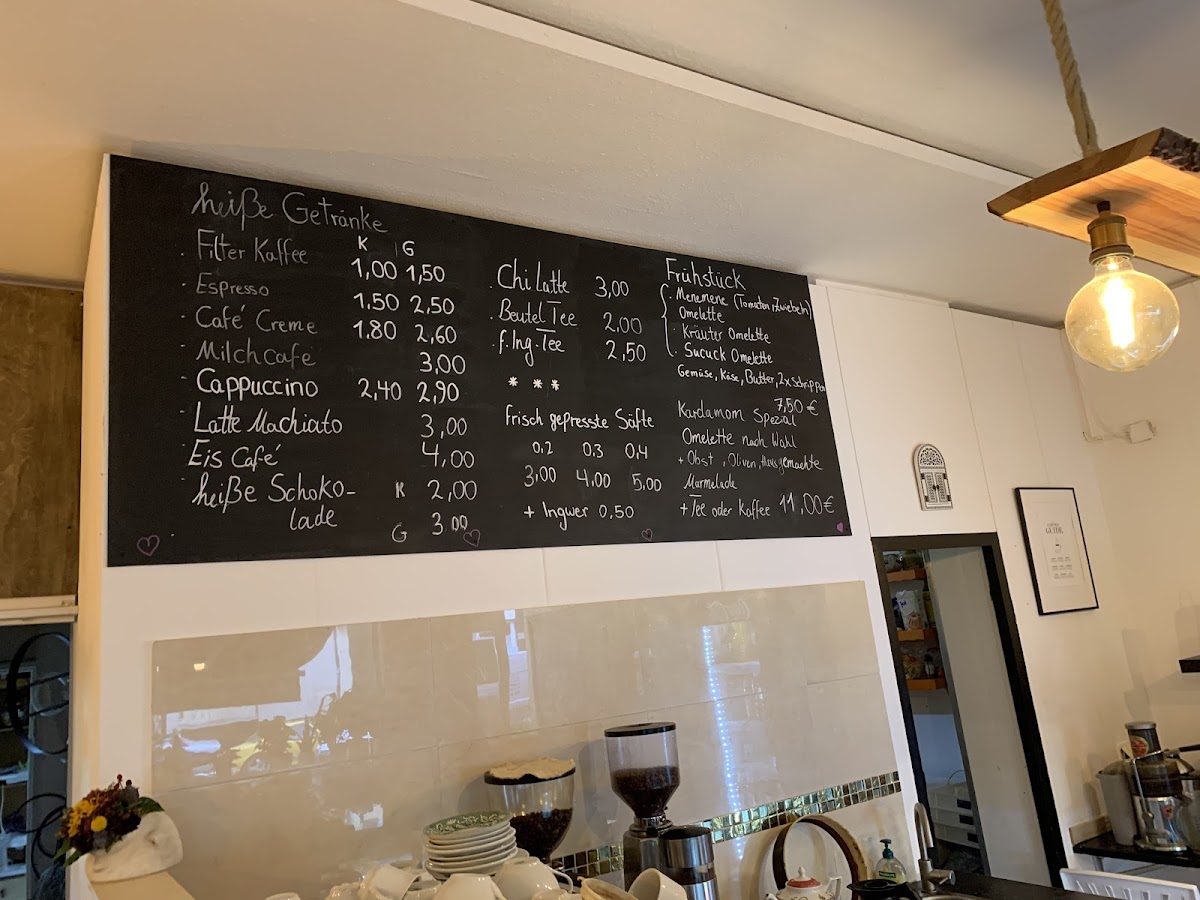 heiße Getränke
K G
· Filter Kaffee 1,00 1,50
· Espresso 1.50 2,50
· Café Creme 1.80 2,60
· Milchcafé 3,00
· Cappuccino 2,40 2,90
· Latte Machiato 3,00
· Eis Café 4,00
· heiße Schoko-
lade
K 2,00
G 3,00
· Chi Latte 3,00
· Beutel Tee 2,00
· f. Ing. Tee 2,50
* * *
Frisch gepresste Säfte
0,2 0,3 0,4
3,00 4,00 5,00
+ Ingwer 0,50
Frühstück
· Menemene (Tomaten, Zwiebeln)
Omelette
· Kräuter Omelette
· Sucuck Omelette
Gemüse, Käse, Butter, 2x Schrippen
7,50 €
Kardamom Spezial
Omelette nach Wahl
+ Obst, Oliven, Hausgemachte
Marmelade
+ Tee oder Kaffee 11,00€
GUIDE